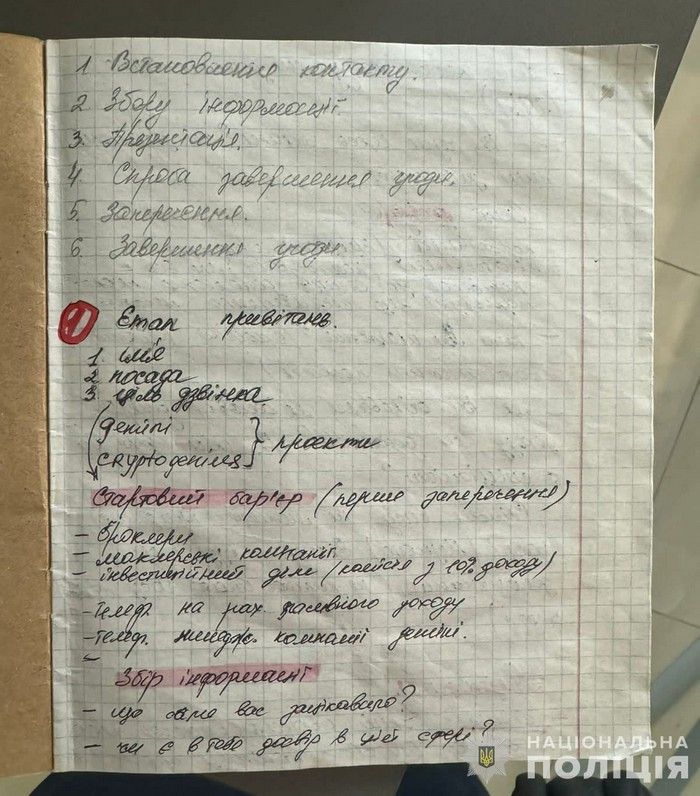 1 Встановлення контакту.
2 Збору інформації.
3. Презентація.
4. Спроба завершення угоди.
5. Заперечення.
6. Завершенні угоди
1 Етап привітань.
1 ім'я
2 посада
3 ціль дзвінка
проекти
Стартовий бар'єр (перше заперечення)
- брокери
- маклерські компанії
- інвестиційний дім (комісія з 10% доходу)
- телеф. на рах. пасивного доходу
- телеф. менедж. компанії
-
Збір інформації
- що саме вас зацікавило?
- чи є в тебе досвід в цій сфері?
НАЦІОНАЛЬНА
ПОЛІЦІЯ